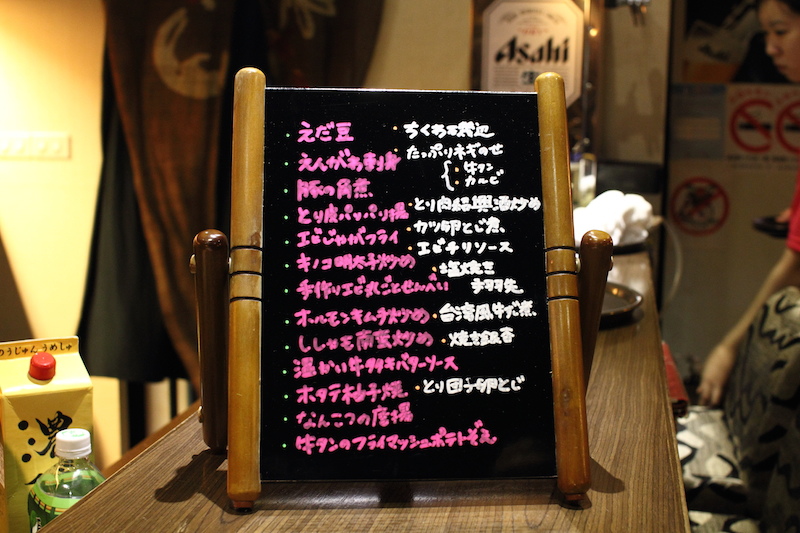 Asahi
えだ豆
えんがわ刺身
豚の角煮
とり皮パッパリ揚
エビじゃがフライ
キノコ明太子炒め
手作りエビ丸ごとせんべい
ホルモンキムチ炒め
ししゃも南蛮炒め
温かい牛タタキバターソース
ホタテ柚子焼
なんこつの唐揚
牛タンのフライマッシュポテトぞえ
ちくわ磯辺
たっぷりネギのせ
牛タン
カルビ
とり肉紹興酒炒め
カツ卵とじ煮
エビチリソース
塩焼き
手羽先
台湾風牛すじ煮
焼銀杏
とり団子卵とじ
のうじゅんうめしゅ
濃